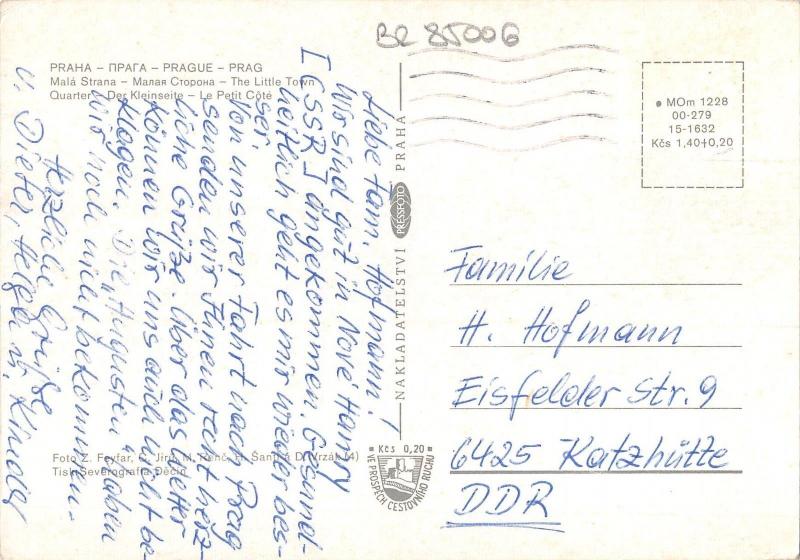 BR 85006
PRAHA – ПРАГА – PRAGUE – PRAG
Malá Strana – Малая Сторона – The Little Town
Quarter – Der Kleinseite – Le Petit Côté
Liebe Fam. Hofmann!
Wir sind gut in Nové Hamry
[ČSSR] angekommen. Gesund-
heitlich geht es mir wieder bes-
ser.
Von unserer Fahrt nach Prag
senden wir Ihnen recht herz-
liche Grüße. Über das Wetter
können wir uns auch nicht be-
klagen. Die "Augusten" haben
wir noch nicht bekommen.
Herzliche Grüße
v. Dieter, Helga u. Kinder
Foto Z. Feyfar, Jírů, M. Šanti a D. Vrzák (4)
Tisk Severografia Děčín
NAKLADATELSTVÍ PRESSFOTO PRAHA
Kčs 0,20
VE PROSPĚCH CESTOVNÍHO RUCHU
MOm 1228
00-279
15-1632
Kčs 1,40+0,20
Familie
H. Hofmann
Eisfelder Str. 9
6425 Katzhütte
DDR